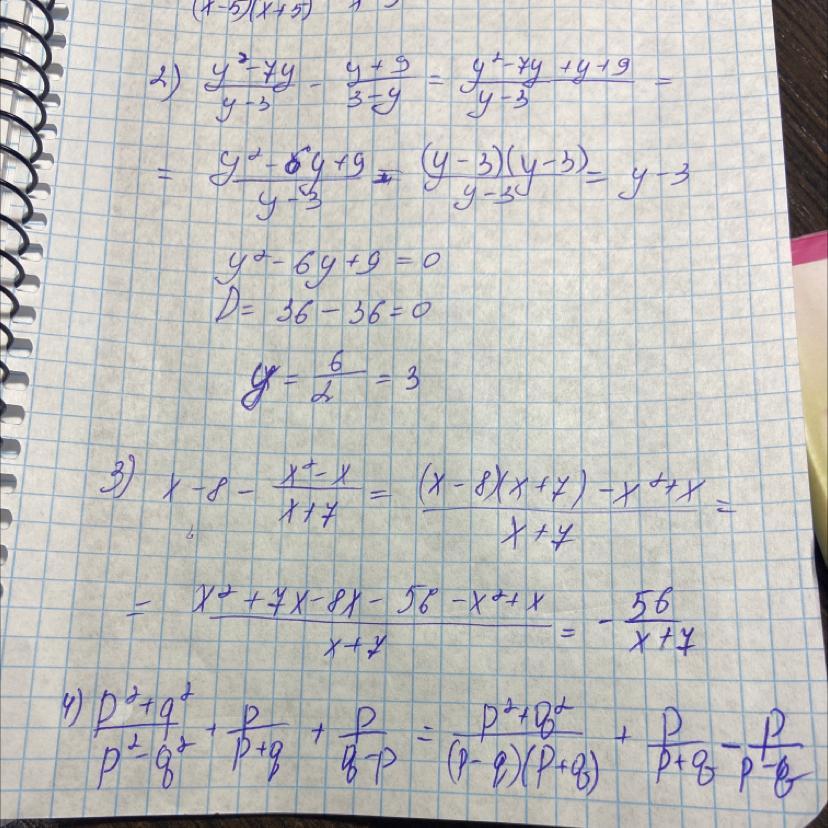 (x-5)(x+5)
2) (y²-7y)/(y-3) - (y+9)/(3-y) = (y²-7y+y+9)/(y-3) =
= (y²-6y+9)/(y-3) = ((y-3)(y-3))/(y-3) = y-3
y²-6y+9=0
D= 36-36=0
y = 6/2 = 3
3) x-8- (x²-x)/(x+7) = ((x-8)(x+7)-x²+x)/(x+7) =
= (x²+7x-8x-56-x²+x)/(x+7) = - 56/(x+7)
4) (p²+q²)/(p²-q²) + p/(p+q) + p/(q-p) = (p²+q²)/((p-q)(p+q)) + p/(p+q) - p/(p-q)